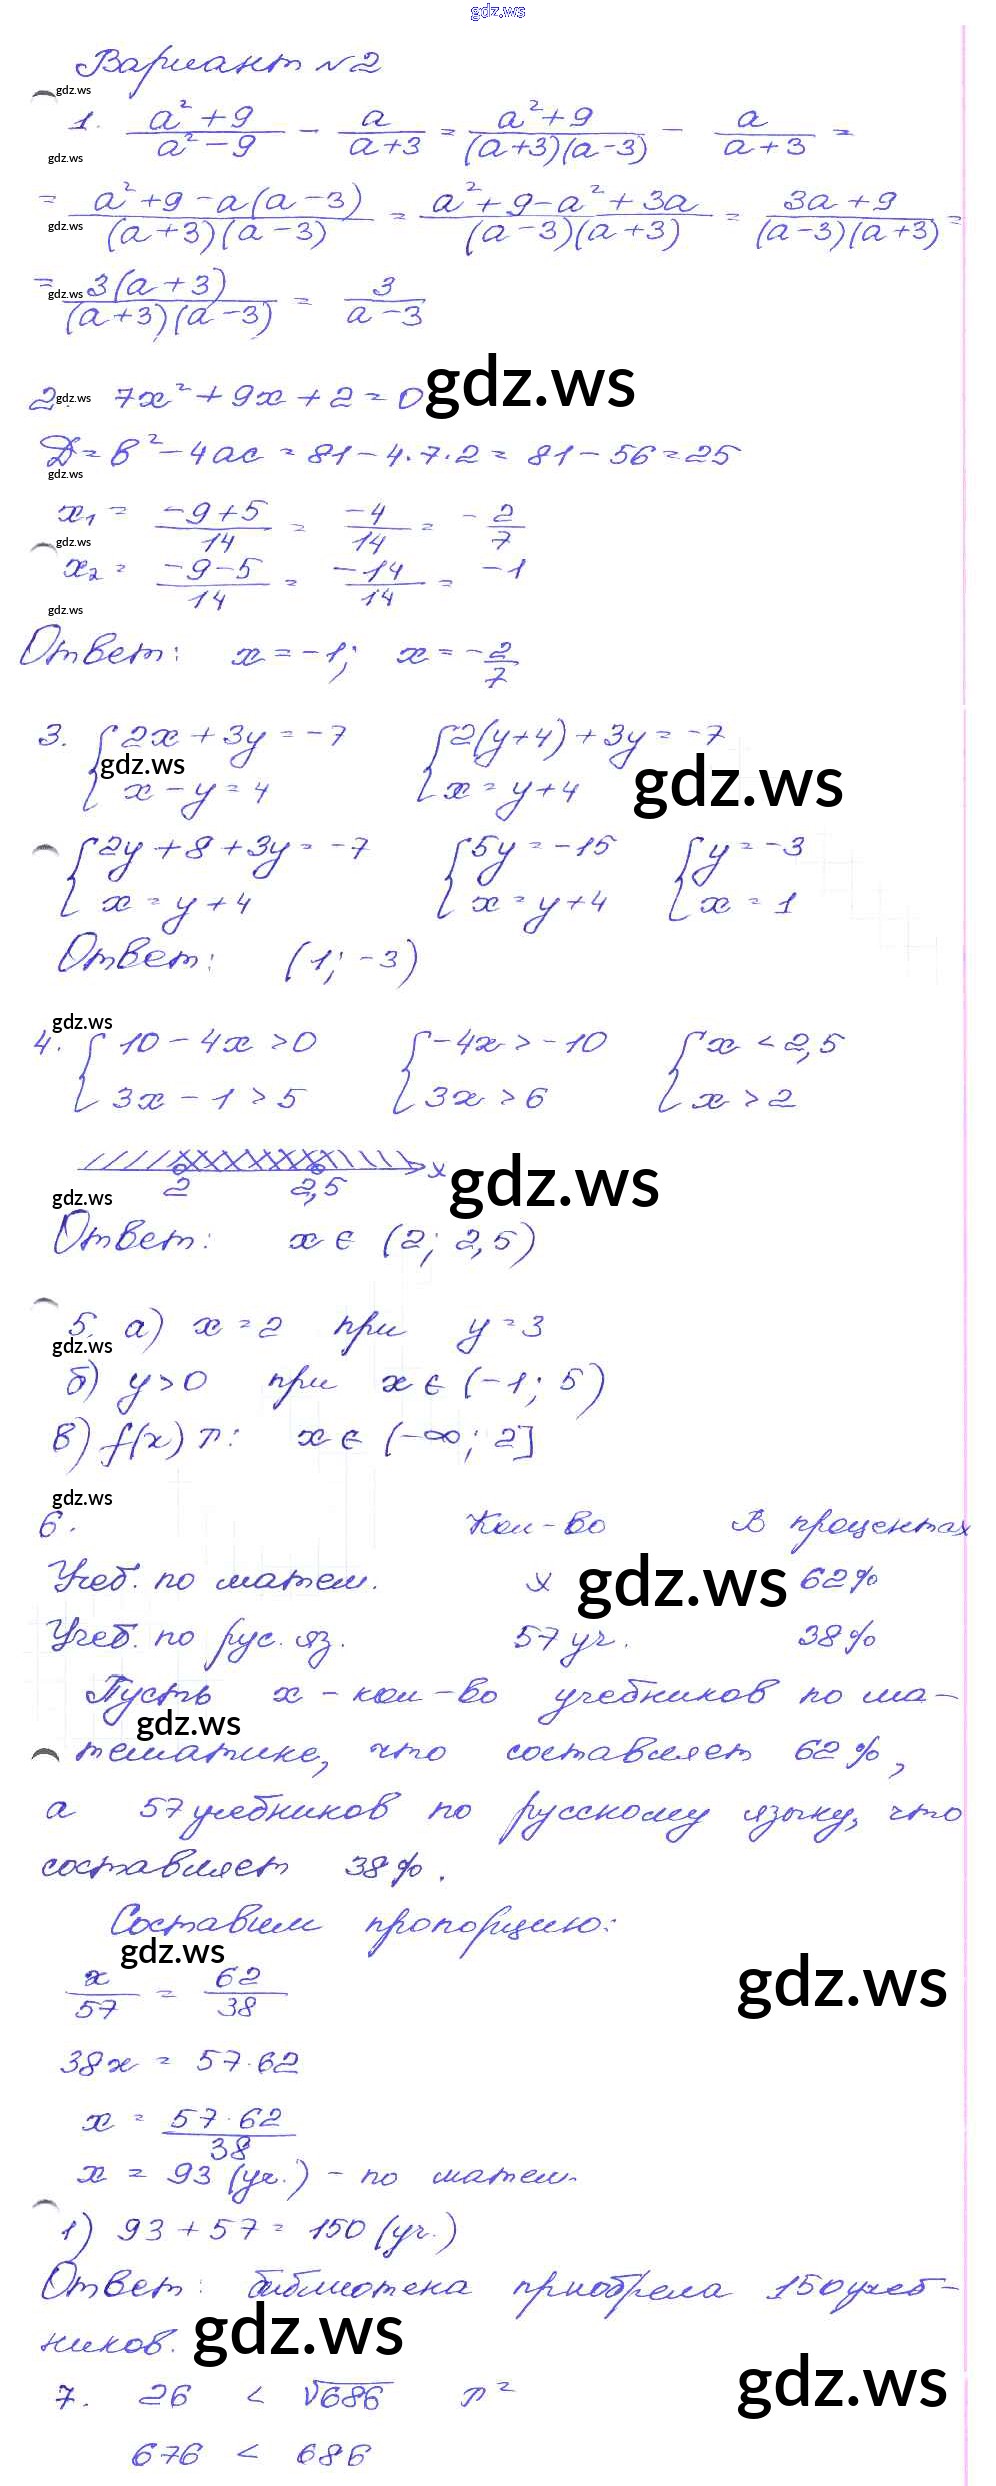 gdz.ws
Вариант №2
gdz.ws
1. (a²+9)/(a²-9) - a/(a+3) = (a²+9)/((a+3)(a-3)) - a/(a+3) =
gdz.ws
= (a²+9-a(a-3))/((a+3)(a-3)) = (a²+9-a²+3a)/((a-3)(a+3)) = (3a+9)/((a-3)(a+3)) =
gdz.ws
= 3(a+3)/((a+3)(a-3)) = 3/(a-3)
gdz.ws
2. 7x²+9x+2=0
gdz.ws gdz.ws
D=b²-4ac=81-4·7·2=81-56=25
gdz.ws
x₁ = (-9+5)/14 = -4/14 = -2/7
gdz.ws
x₂ = (-9-5)/14 = -14/14 = -1
gdz.ws
Ответ: x=-1; x=-2/7
3. {2x+3y=-7 {2(y+4)+3y=-7
gdz.ws gdz.ws
x-y=4 x=y+4
{2y+8+3y=-7 {5y=-15 {y=-3
x=y+4 x=y+4 x=1
Ответ: (1; -3)
gdz.ws
4. {10-4x>0 {-4x>-10 {x<2,5
3x-1>5 3x>6 x>2
x gdz.ws
2 2,5
gdz.ws
Ответ: x∈(2; 2,5)
5. а) x=2 при y=3
gdz.ws
б) y>0 при x∈(-1; 5)
в) f(x) п: x∈(-∞; 2]
gdz.ws
6. Кол-во В процентах
Учеб. по матем. x 62%
gdz.ws
Учеб. по рус. яз. 57 уч. 38%
Пусть x - кол-во учебников по ма-
gdz.ws
тематике, что составляет 62%,
а 57 учебников по русскому языку, что
составляет 38%.
Составим пропорцию:
gdz.ws gdz.ws
x/57 = 62/38
38x = 57·62
x = 57·62/38
x = 93 (уч.) - по матем.
1) 93+57=150 (уч.)
Ответ: библиотека приобрела 150 учеб-
ников.
gdz.ws
gdz.ws
7. 26 < √686 п²
676 < 686